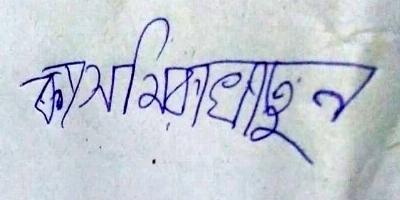 কাসমিকাখাতুন